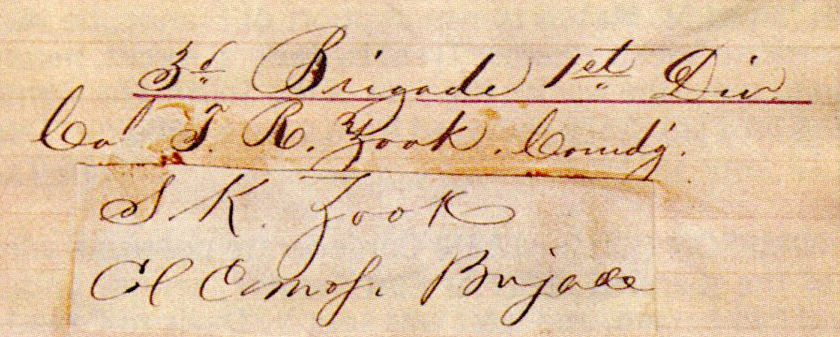 3d Brigade 1st Div.
Col T. R. Zook. Comdg.
S K. Zook
Col Comdg. Brigade